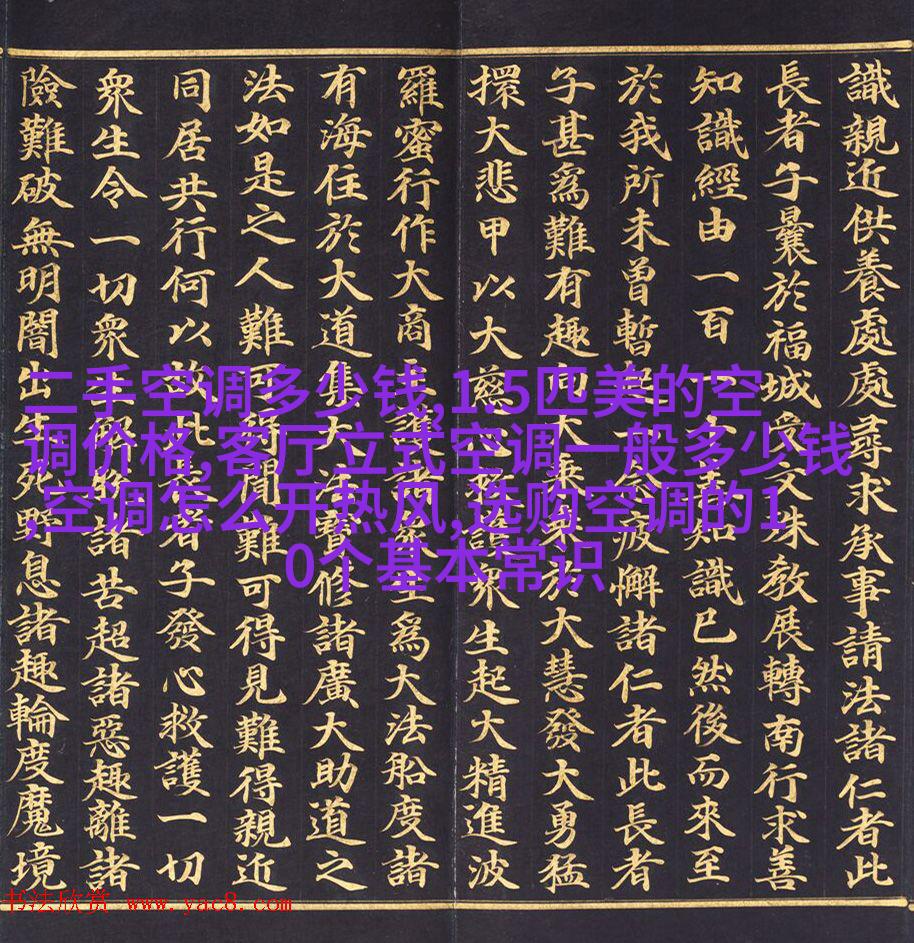 識親近供養處處尋求承事請法諸仁者此
長者子曩於福城受文殊教展轉南行求善
知識經由一百一十善知識已然後而來至
於我所未曾暫起一念疲懈諸仁者此長者
子甚爲難有趣向大乘乘於大慧發大勇猛
擐大悲甲以大慈心救護眾生起大精進波
羅蜜行作大商主護諸眾生爲大法船度諸
有海住於大道集大法寶修諸廣大助道之
法如是之人難可得聞難可得見難得親近
同居共行何以故此長者子發心救護一切
衆生令一切衆生解脫諸苦超諸惡趣離諸
險難破無明闇出生死野息諸趣輪度魔境
二手空调多少钱,1.5匹美的空
调价格,客厅立式空调一般多少钱
,空调怎么开热风,选购空调的1
0个基本常识
书法欣赏 www.yac8.com